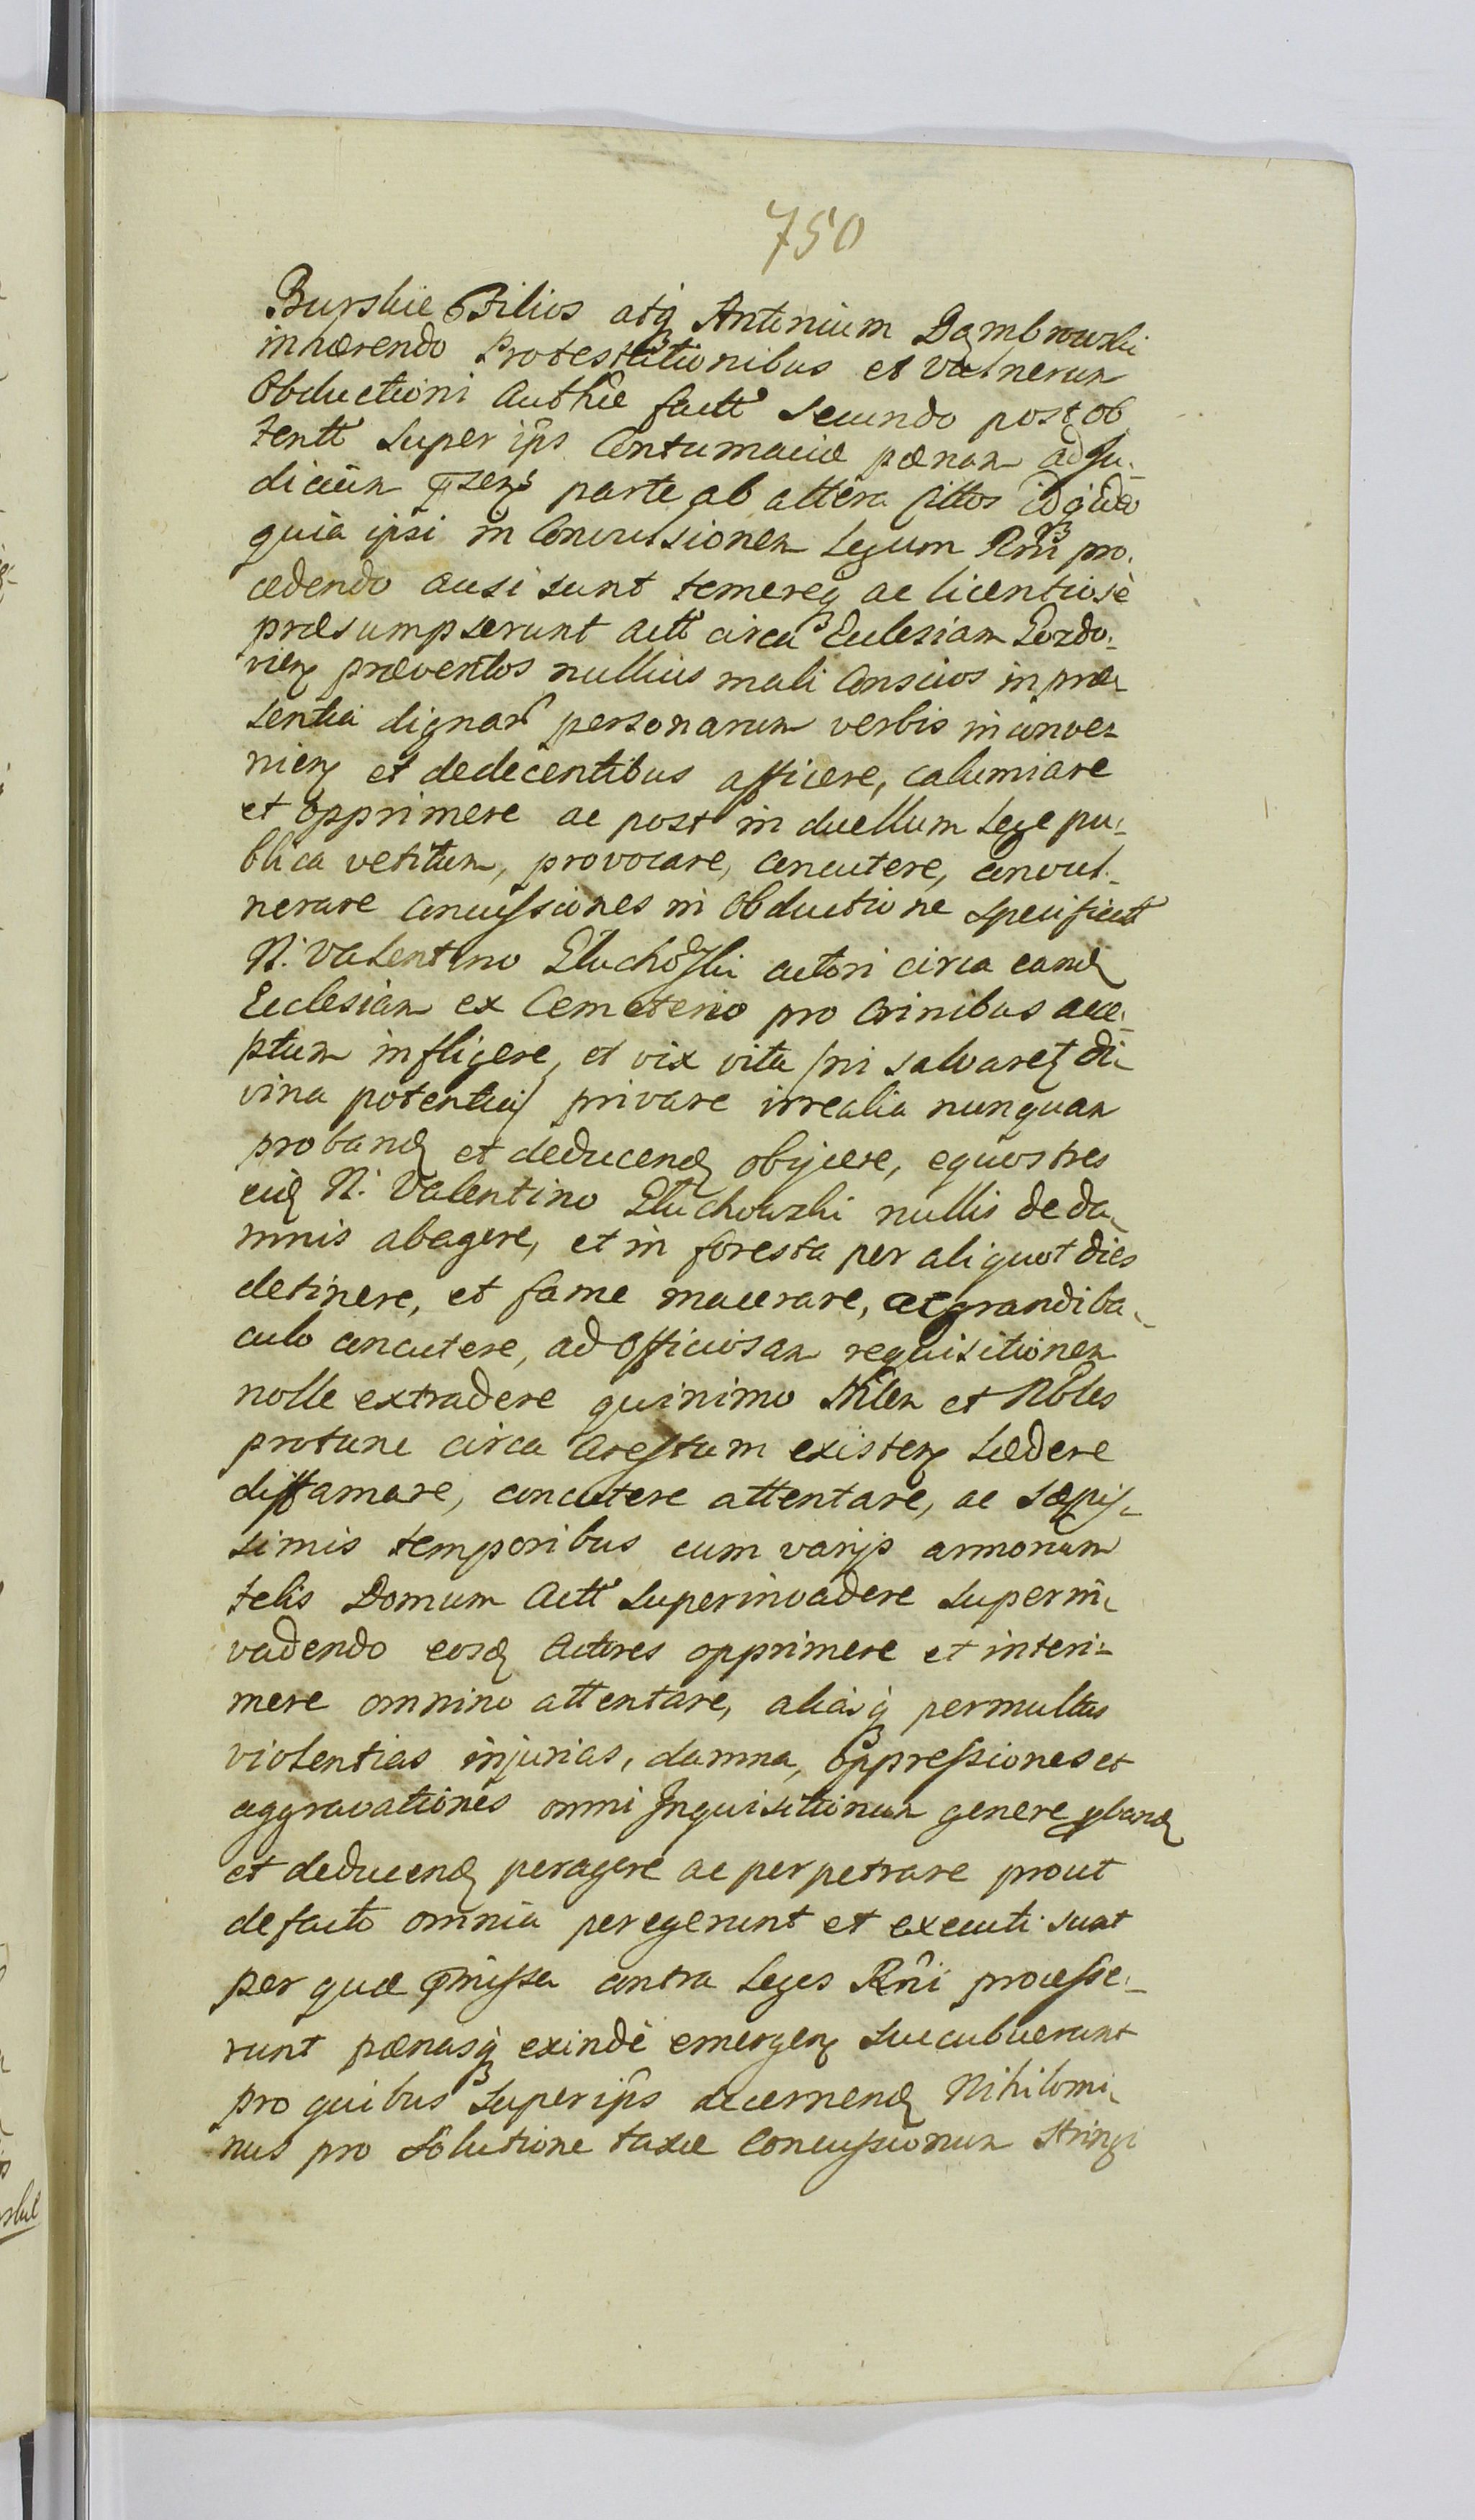 750
Burskie Filios atq3 Antonium Dąmbrowski
inhærendo Protestationibus et Vulnerum
Obductioni Authæ factt secundo post ob
tentt super ips Contumaciæ pænam ad Ju-
dicium pzens parte ab altera cittos idq3 ideo
quia ipsi in Concussionem Legum Rni pro-
cedendo ausi sunt temereq3 ac licentiosè
præsumpserunt actt circa Ecclesiam
vien præventos nullius mali Conscios in præ-
sentia dignar personarum verbis inconve-
nien et dedecentibus afficere, calumiare
et opprimere ac post in duellum Lege pu-
blica vetitum, provocare, concutere, convul-
nerare concussiones in Obductione specificatt
N. Valentino Głuchoski actori circa eand
Ecclesiam ex Cemeterio pro Crinibus acce-
ptum infligere, et vix vita /ni salvaret di-
vina potentia/ privare irrealia nunquam
proband et deducend objicere, equos tres
eid N. Valentino Głuchowski nullis de da-
mnis abagere, et in foresta per aliquot dies
detinere, et fame macerare, ac grandi ba-
culo concutere, ad Officiosam requisitionem
nolle extradere quinimo Nilem et Nbles
protunc circa Arestum existen Lædere
diffamare, concutere attentare, ac sæpis-
simis temporibus cum varijs armorum
telis Domum Actt superinvadere superin-
vadendo eosd Actores opprimere et interi-
mere omnino attentare, aliasq3 permultas
violentias injurias, damna, oppressiones et
aggravationes omni Inquisitionum genere pband
et deducend peragere ac perpetrare prout
defacto omnia peregerunt et executi sunt
per quæ pmissa contra Leges Rni processe-
runt pænasq3 exindè emergen succubuerunt
pro quibus super ips decernend Nihilomi-
nus pro solutione taxæ Concussionum